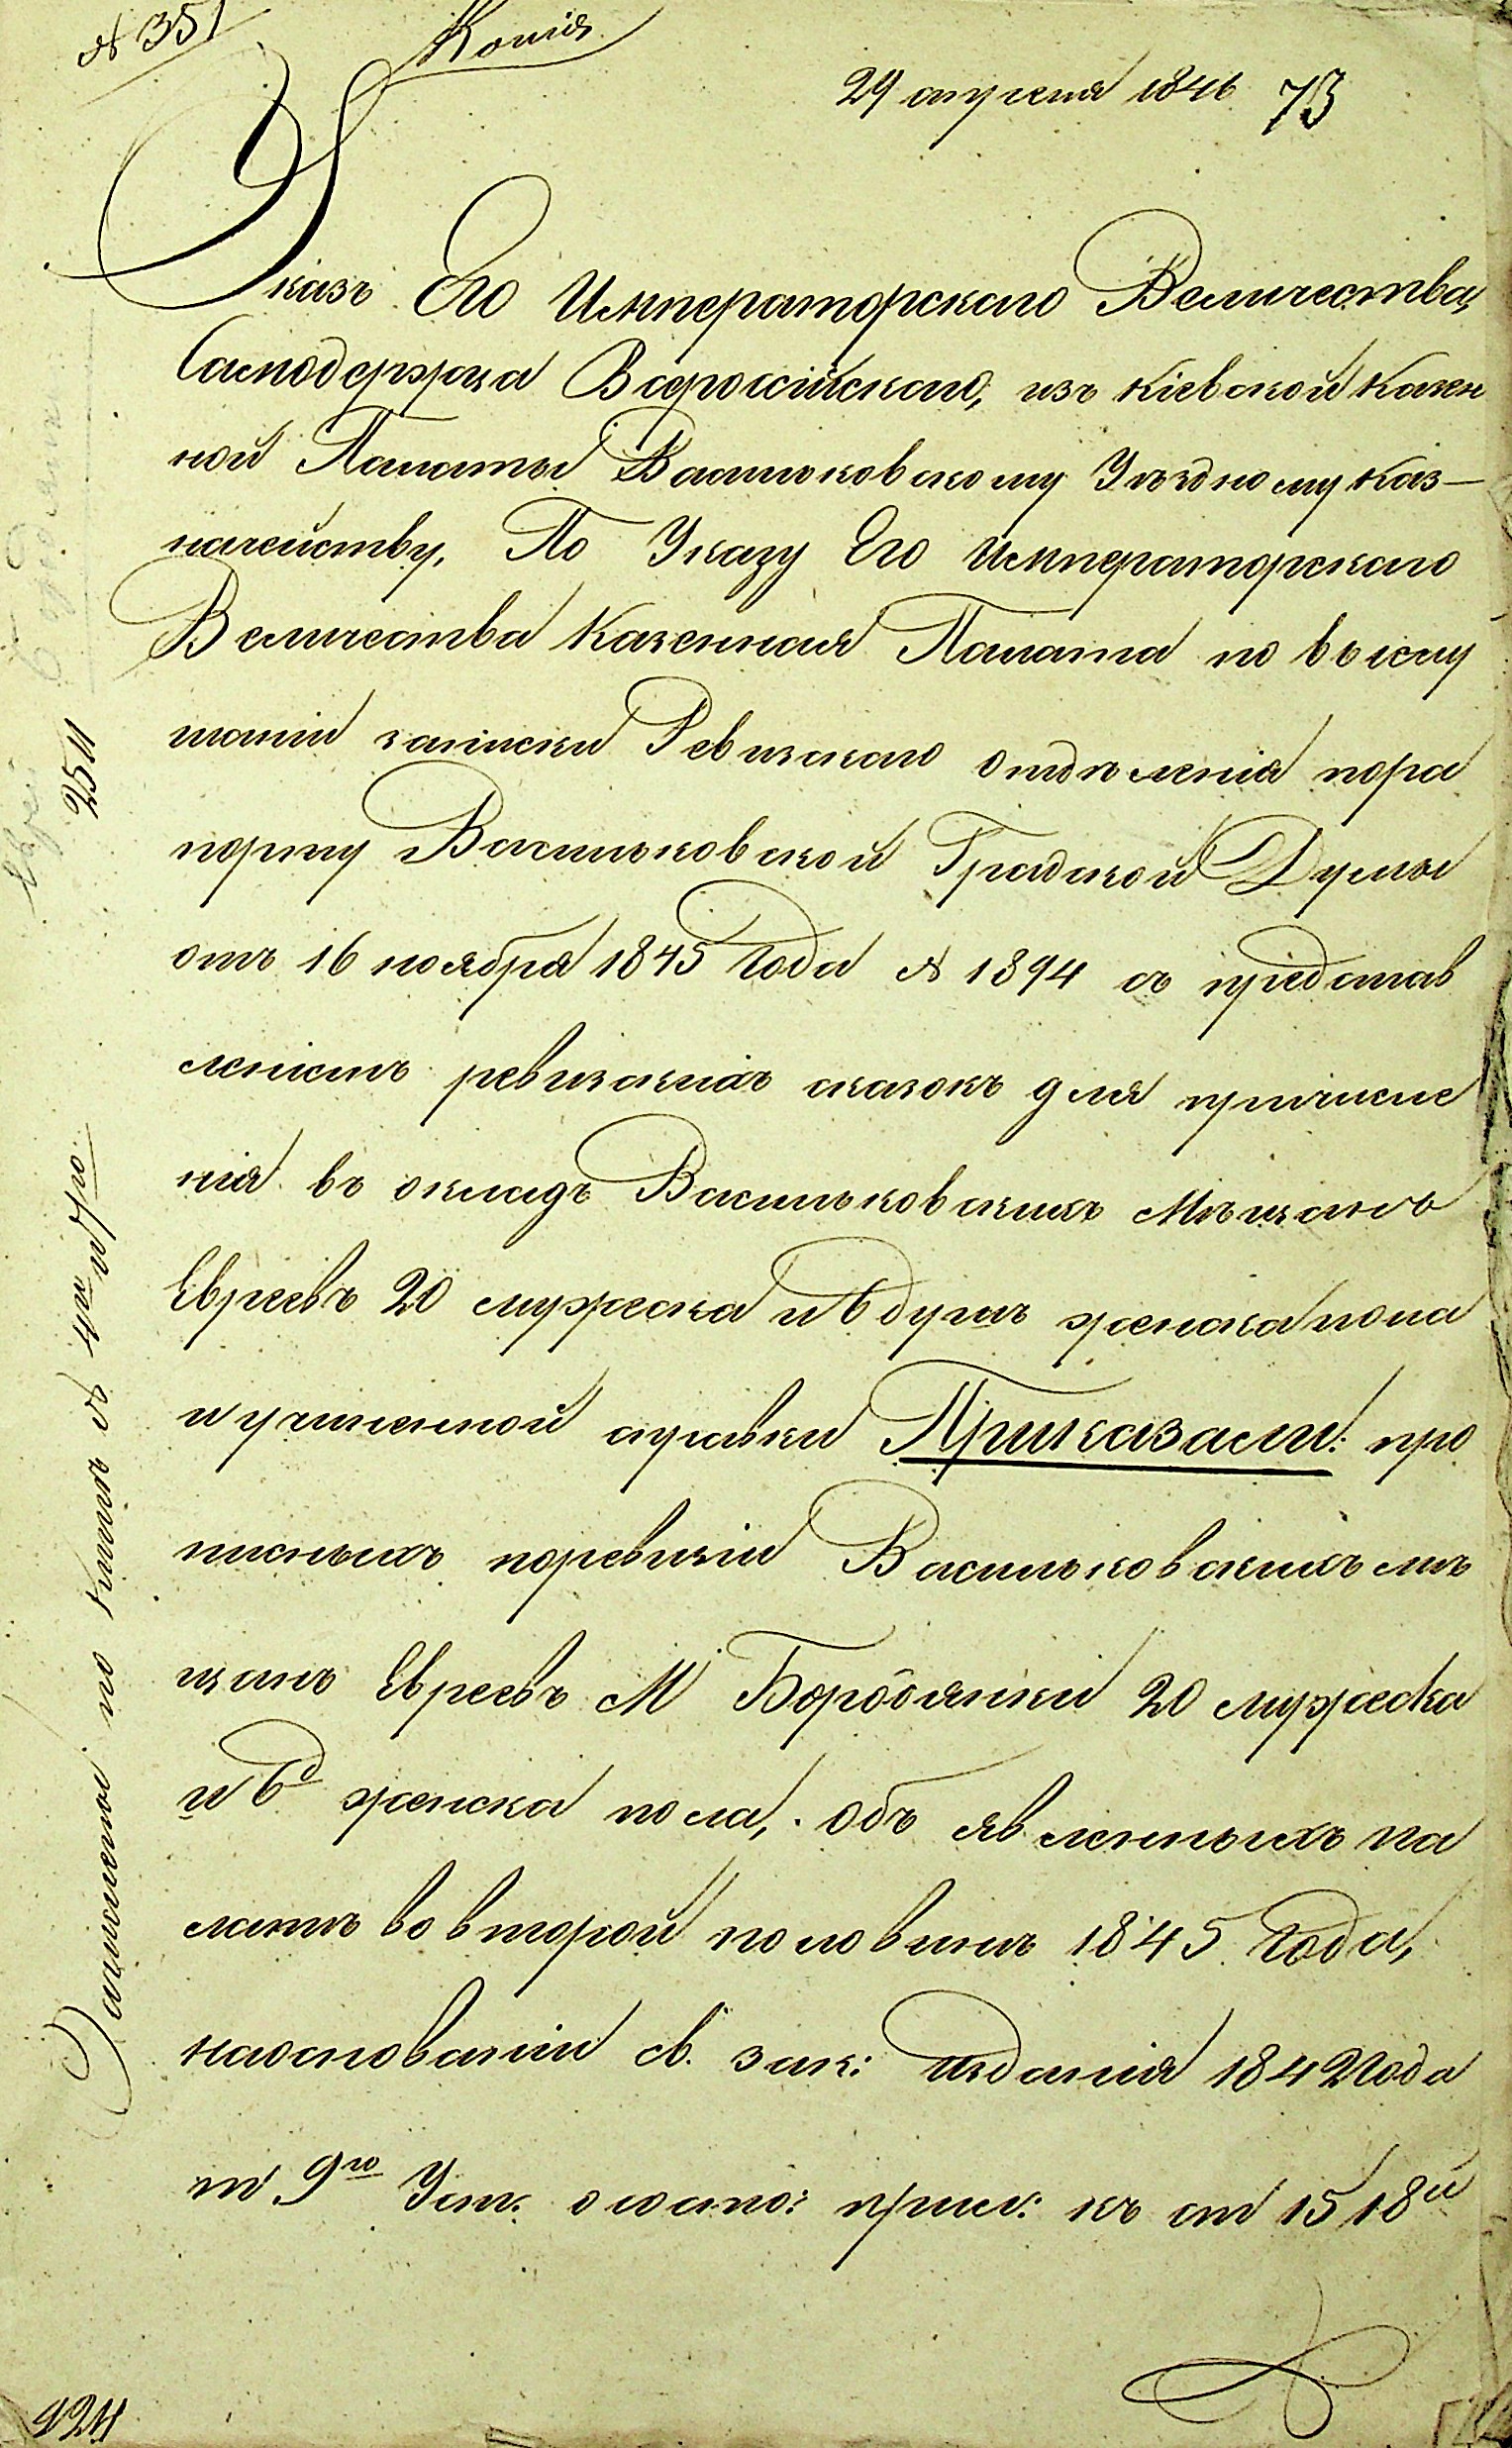 № 351
Копія
29 апреля 1846 73
Указъ Его Императорскаго Величества,
Самодержца Всероссійскаго, изъ Кіевской Казен
ной Палаты Васильковскому Уѣздному Каз-
начейству. По Указу Его Императорскаго
Величества Казенная Палата по выслу
шаніи записки Ревизскаго отдѣленія пора
порту Васильковской Градской Думы
отъ 16 ноября 1845 Года № 1894 съ представ
леніемъ ревизскихъ сказокъ для причисле
нія въ окладъ Васильковскихъ Мѣщанъ
Евреевъ 20 мужеска и 6 душъ женска пола
и учиненной справки Приказали: про
писныхъ поревизіи Васильковскихъ мѣ
щанъ Евреевъ М Бородянки 20 мужеска
и 6 д женска пола, объявленныхъ Па
латѣ во второй половинѣ 1845 Года,
наоснованіи св. зак: изданія 1842 года
т 9го Уст. о состо: прим: къ ст 1518й
Записаны по книгѣ
2511
924